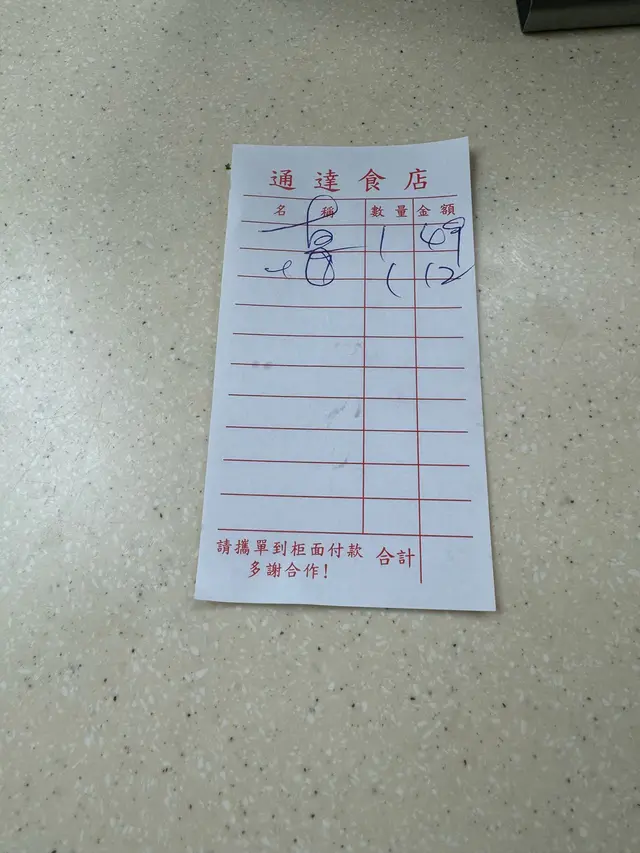 通達食店
名稱 數量 金額
1 49
1 12
請攜單到柜面付款 合計
多謝合作!